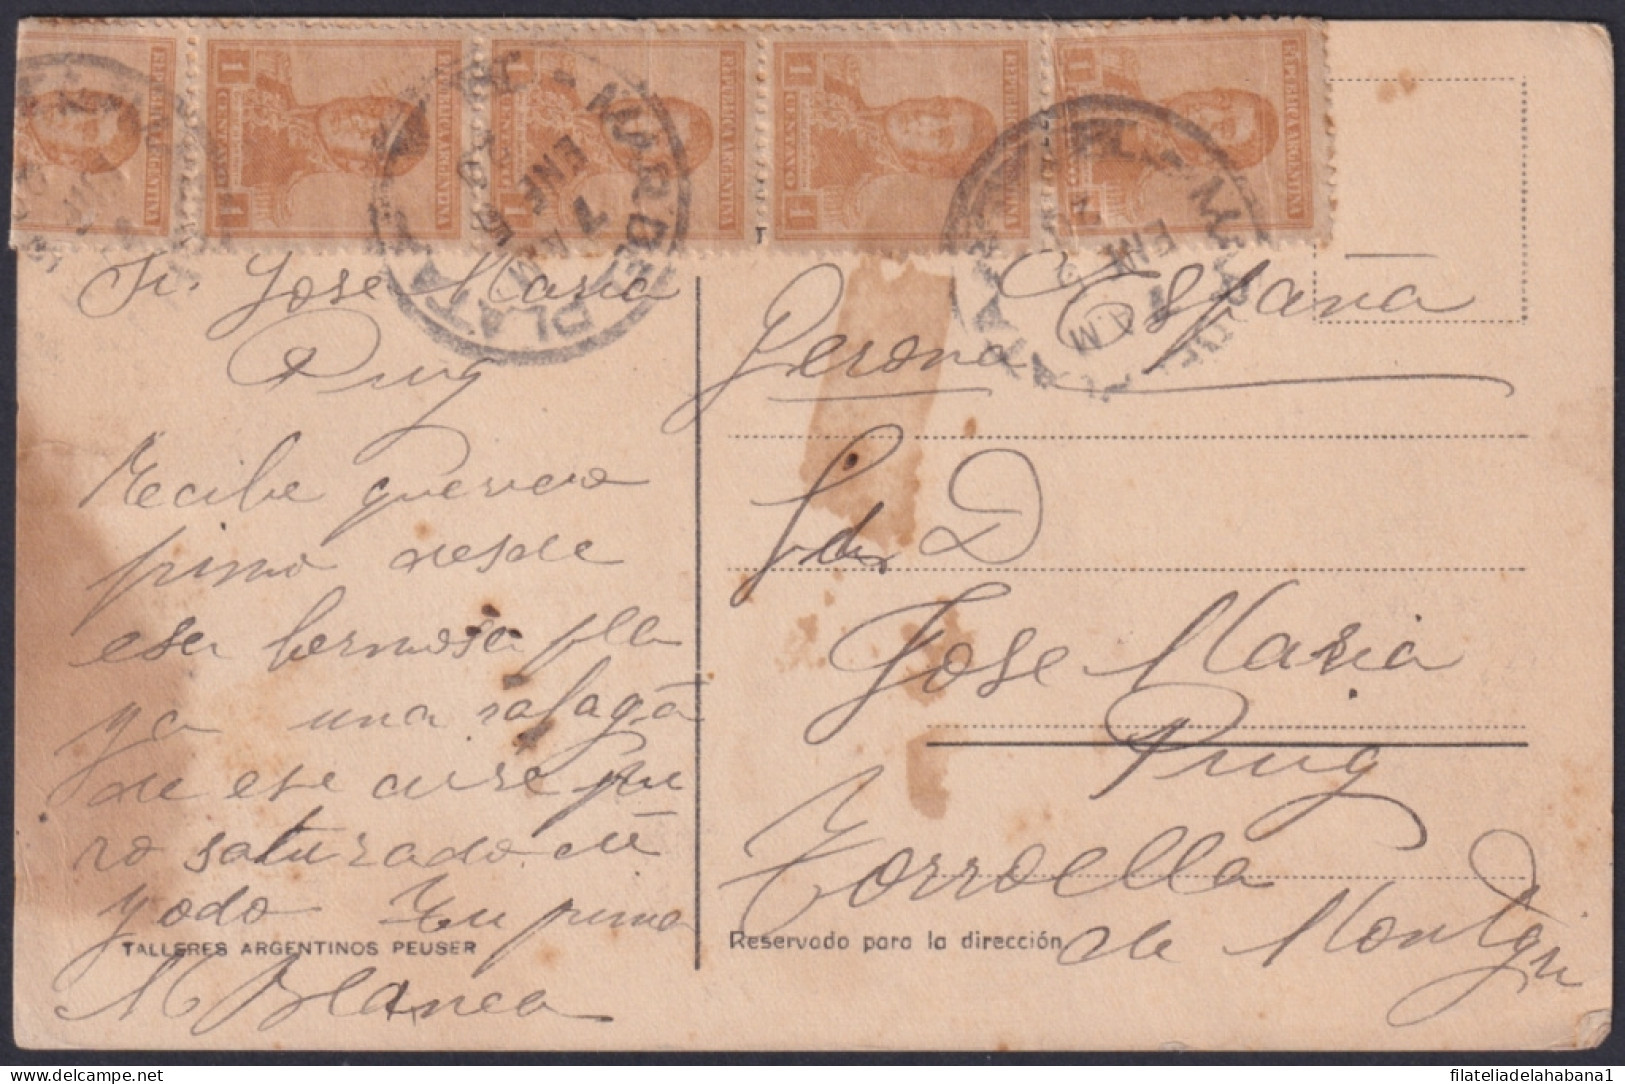 REPUBLICA ARGENTINA
1 CENTAVO 1
REPUBLICA ARGENTINA
1 CENTAVO 1
REPUBLICA ARGENTINA
1 CENTAVO 1
REPUBLICA ARGENTINA
1 CENTAVO 1
REPUBLICA ARGENTINA
MAR DEL PLATA
7 ENE
MAR DEL PLATA
7 ENE
A.M
Sr. Jose Maria
Puig
Recibe
primo desde
esa hermosa pla
ya una rafaga
de ese aire pu
ro saturado de
yodo Tu prima
M Blanca
TALLERES ARGENTINOS PEUSER
España
Gerona
Sdor D
Jose Maria
Puig
Torroella
de Montgri
Reservado para la dirección
filateliadelahabana1